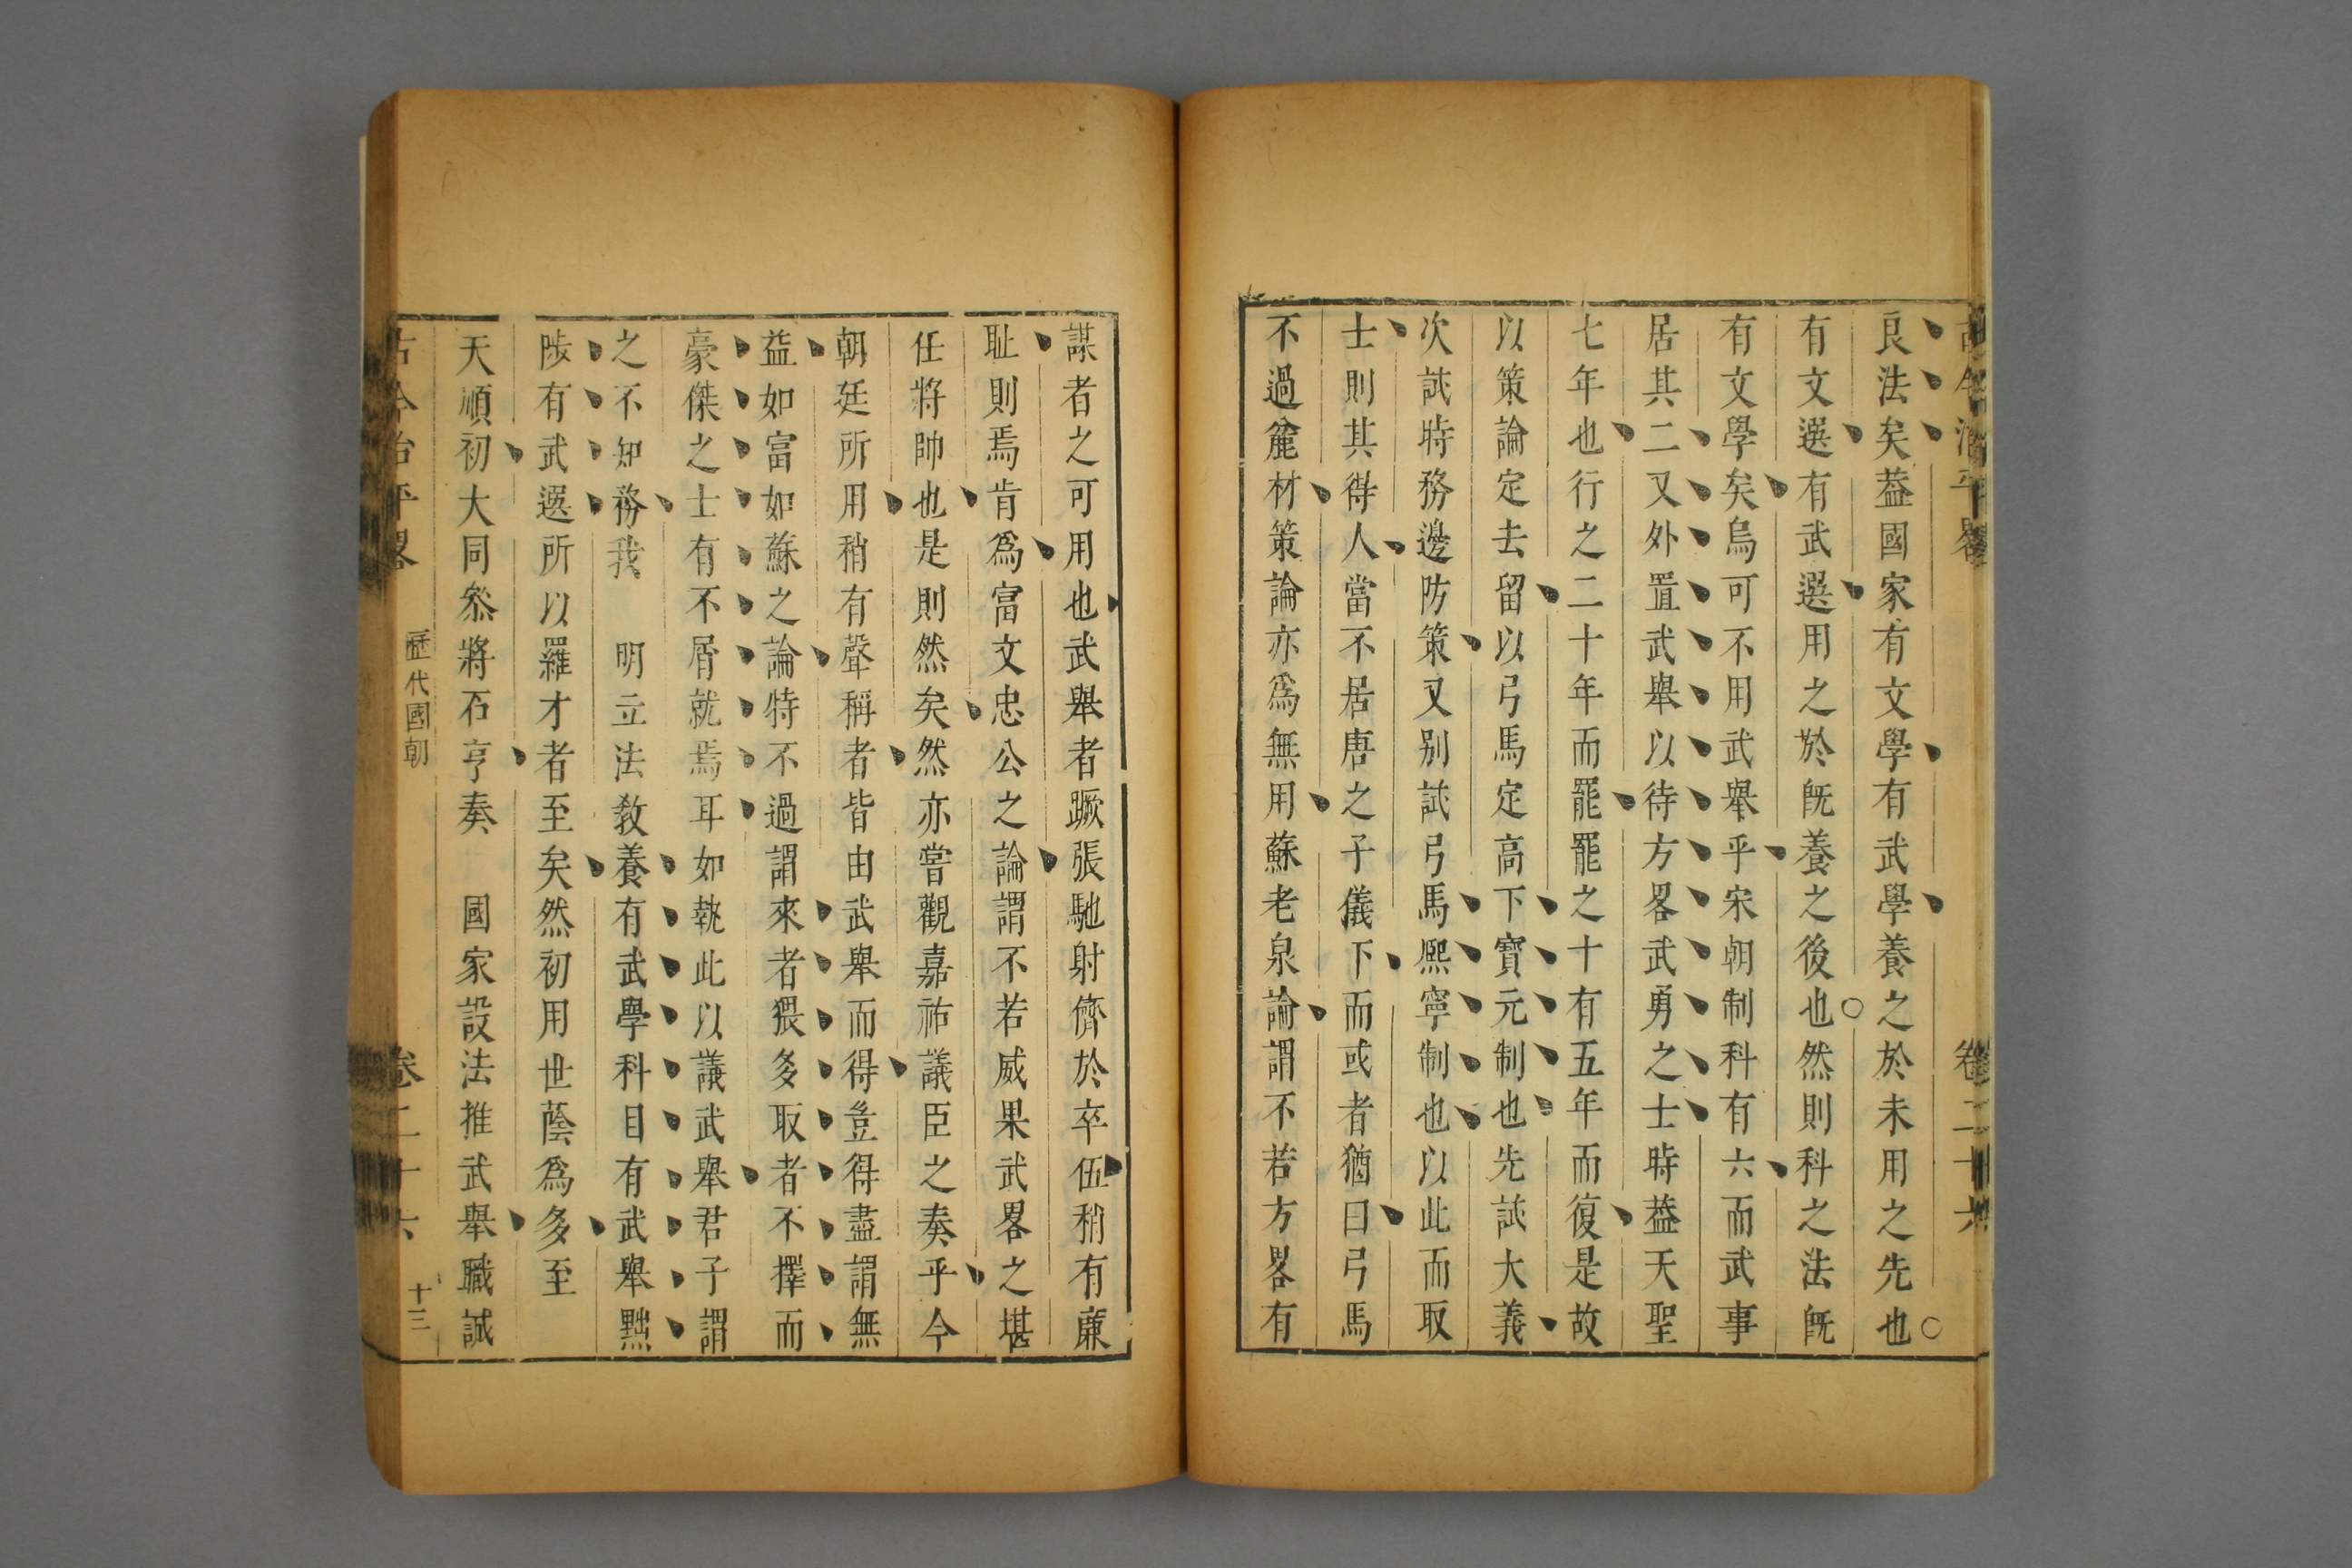 古今治平畧 卷二十六
良法矣葢國家有文學有武學養之於未用之先也
有文選有武選用之於旣養之後也然則科之法旣
有文學矣烏可不用武舉乎宋朝制科有六而武事
居其二又外置武舉以待方畧武勇之士時葢天聖
七年也行之二十年而罷罷之十有五年而復是故
以策論定去留以弓馬定高下寶元制也先試大義
次試時務邊防策又别試弓馬熙寧制也以此而取
士則其得人當不居唐之子儀下而或者猶曰弓馬
不過麄材策論亦爲無用蘇老泉論謂不若方畧有
謀者之可用也武舉者蹶張馳射儕於卒伍稍有廉
耻則焉肯爲富文忠公之論謂不若威果武畧之堪
任將帥也是則然矣然亦甞觀嘉祐議臣之奏乎今
朝廷所用稍有聲稱者皆由武舉而得豈得盡謂無
益如富如蘇之論特不過謂來者猥多取者不擇而
豪傑之士有不屑就焉耳如執此以議武舉君子謂
之不知務我 明立法教養有武學科目有武舉黜
陟有武選所以羅才者至矣然初用世蔭爲多至
天順初大同叅將石亨奏 國家設法推武舉職誠
古今治平畧 歷代國朝 卷二十六 十三